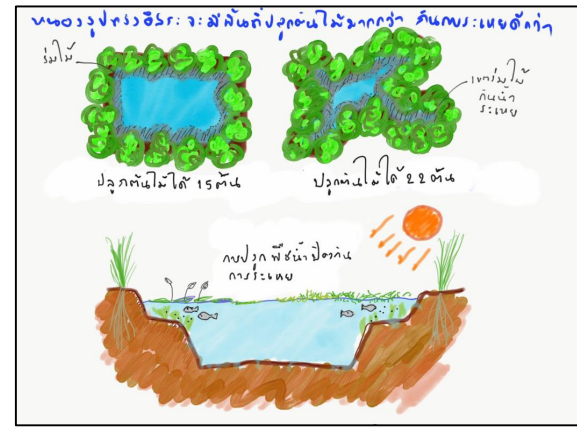 หนองรูปทรงอิสระ จะมีพื้นที่ปลูกต้นไม้มากกว่า กันการระเหยดีกว่า
ร่มไม้
เงาร่มไม้
กันน้ำ
ระเหย
ปลูกต้นไม้ได้ 15 ต้น
ปลูกต้นไม้ได้ 22 ต้น
การปลูกพืชน้ำป้องกัน
การระเหย